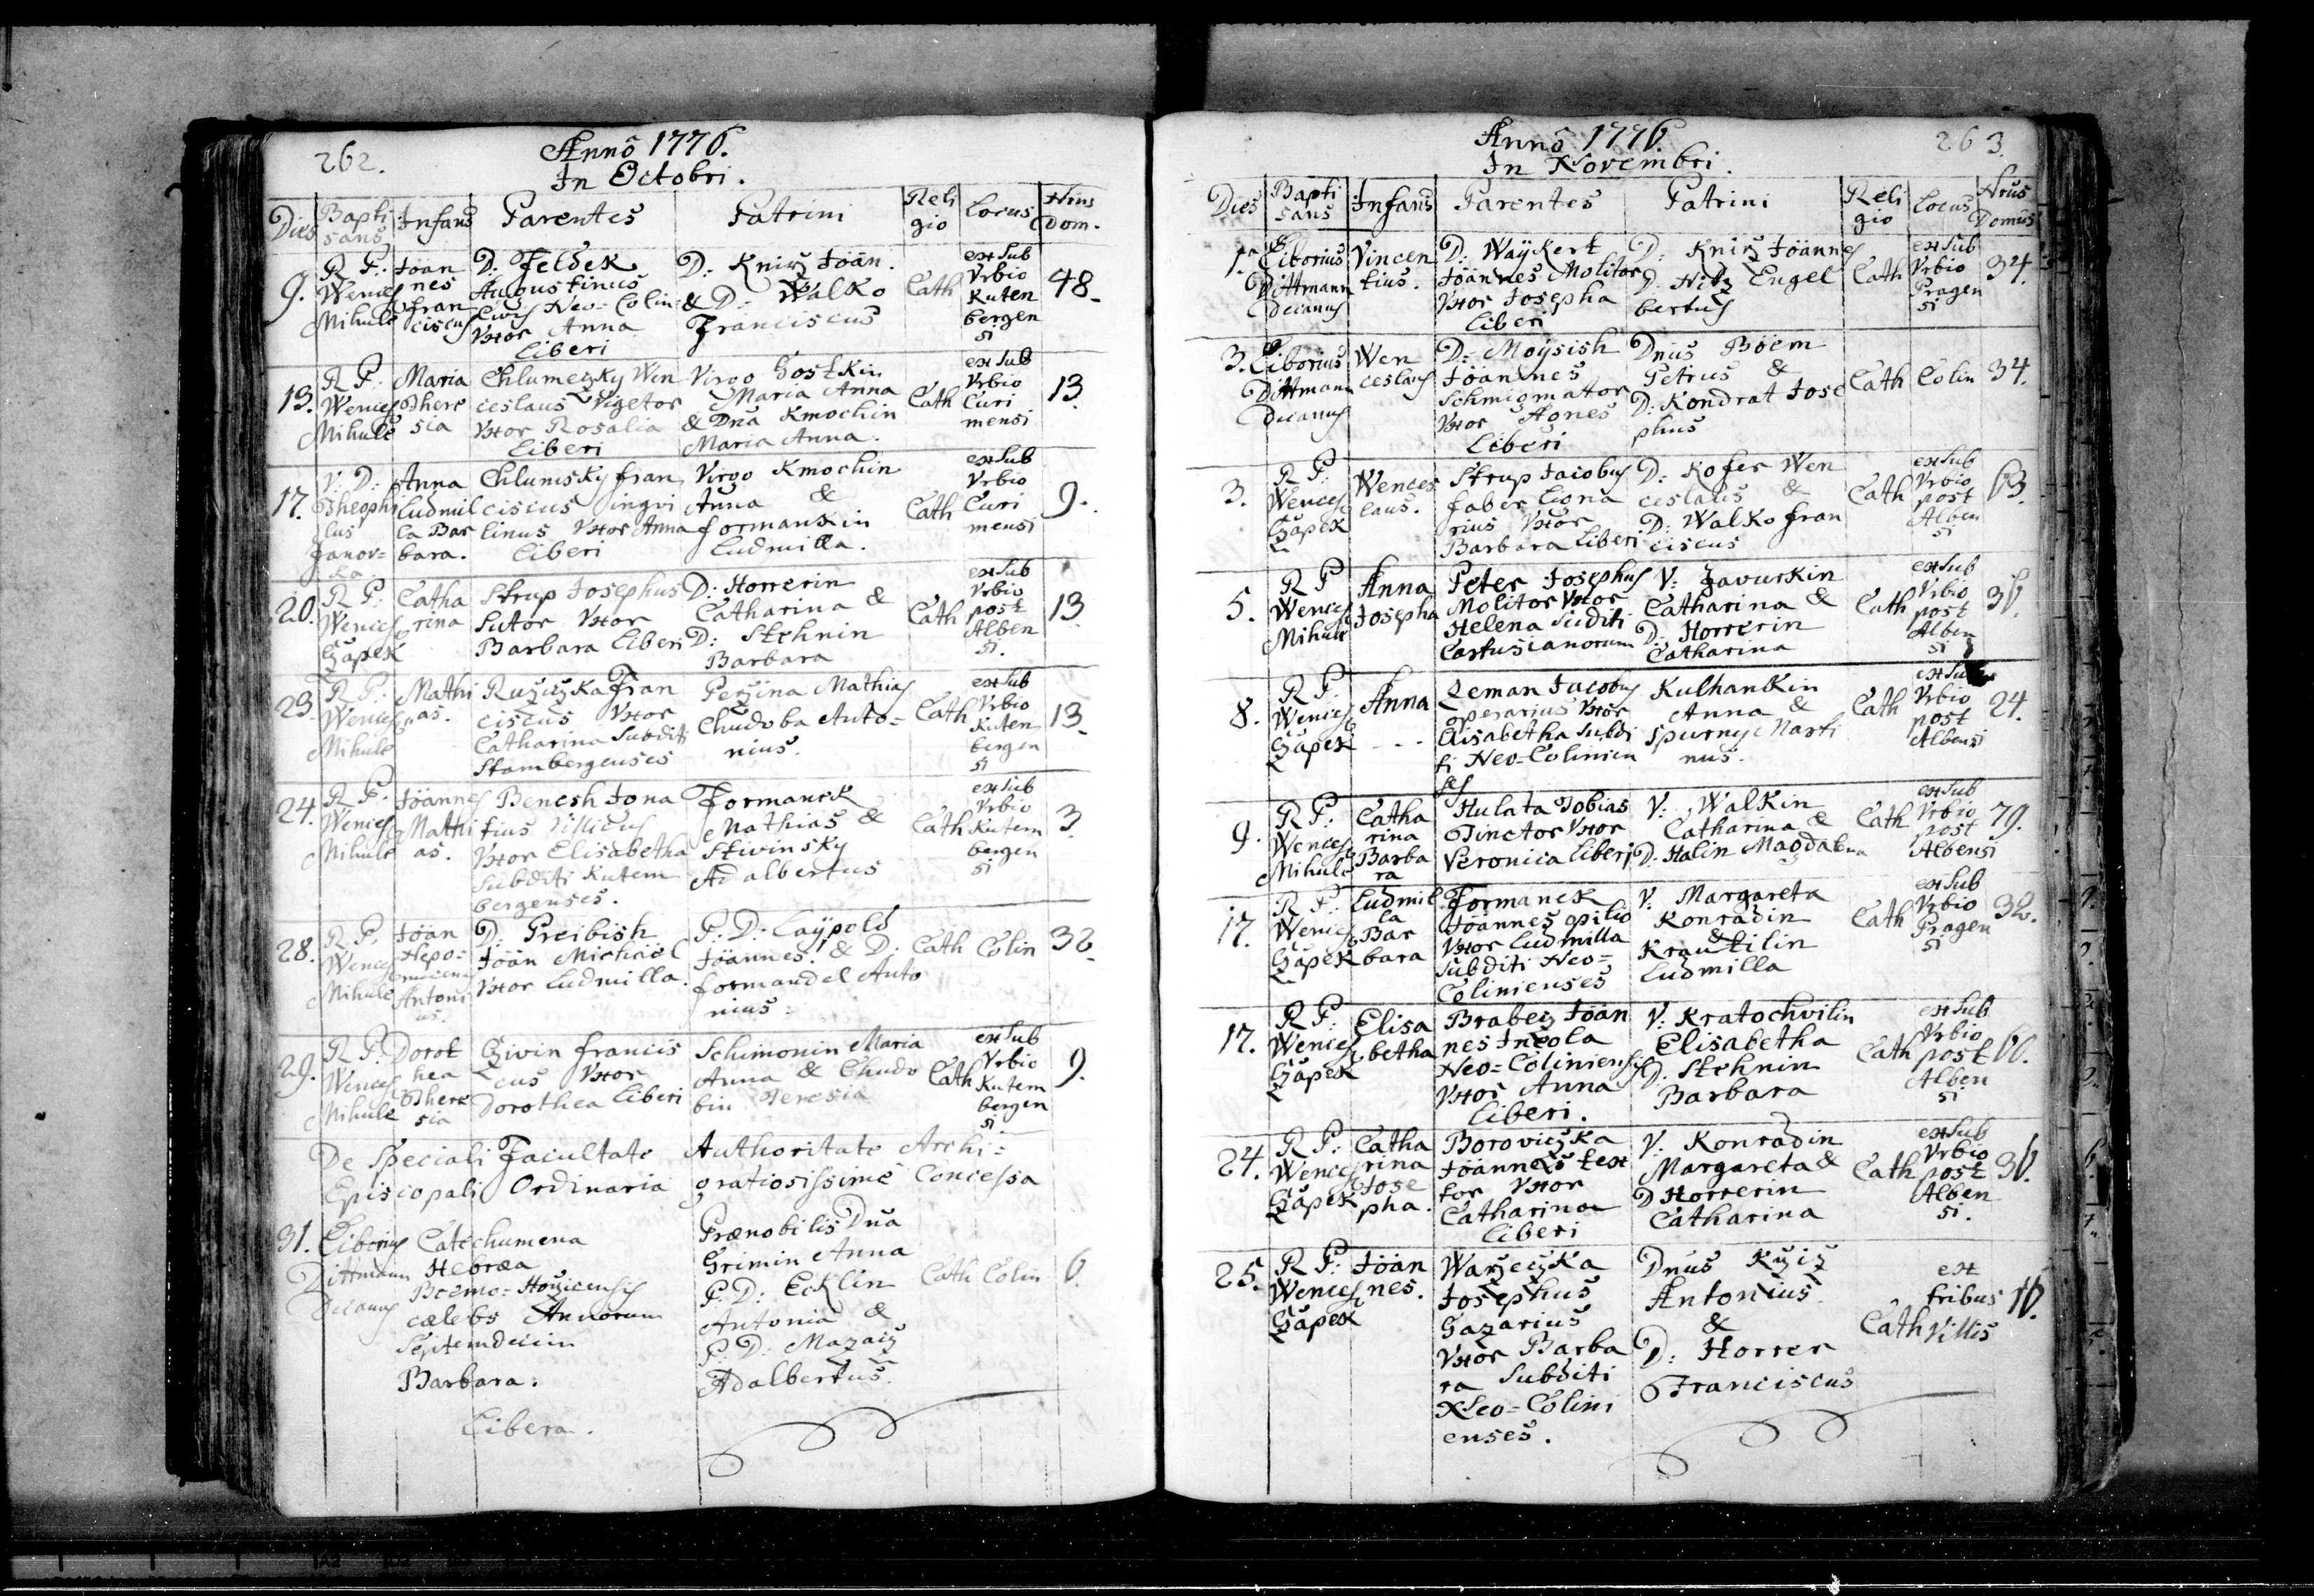 262.
Annô 1776.
In Octobri.
Dies Bapti sans Infans Parentes Patrini Reli gio Locus Nrus Dom.
9. R. P. Wences Mihule
Joan nes Fran ciscus
D: Feldek
Augustinus
Civis Neo-Colin:
Vxor Anna
Liberi
D: Knirz Joän.
& D: Walko
Franciscus
Cath
ex Sub
Vrbio
Kuten
bergen
si
48.
13. R. P. Wences Mihule
Maria There sia
Chlumeczky Wen
ceslaus Vigetor
Vxor Rosalia
Liberi
Virgo Hostkin
Maria Anna
& Dña Kmochin
Maria Anna.
Cath
ex Sub
Vrbio
Curi
mensi
13.
17. V. D. Theophi lus Janov= ka
Anna Ludmil la Bar bara.
Chlumsky Fran
ciscus inqvi
linus Vxor Anna
Liberi
Virgo Kmochin
Anna &
Formankin
Ludmilla.
Cath
ex Sub
Vrbio
Curi
mensi
9.
20. R. P. Wences Czapek
Catha rina
Strup Josephus
Sutor Vxor
Barbara Liberi
D: Horrerin
Catharina &
D: Stehnin
Barbara
Cath
ex Sub
Vrbio
post
Alben
si.
13
23. R. P. Wences Mihule
Mathi as.
Ruziczka Fran
ciscus Vxor
Catharina Subditi
Stambergenses
Perzina Mathias
Chudoba Anto=
nius.
Cath
ex Sub
Vrbio
Kuten
bergen
si
13.
24. R. P. Wences Mihule
Joannes Mathi as.
Benesh Igna
tius Villicus
Vxor Elisabetha
Subditi Kutem
bergenses.
Formanek
Mathias &
Stivinsky
Adalbertus
Cath
ex Sub
Vrbio
Kutem
bergen
si
3.
28. R. P. Wences Mihule
Joan Nepo= mucenus Antoni us.
D: Preibish
Joän Michäel
Vxor Ludmilla.
P. D: Laypold
Joannes. & D.
Formandel Anto
nius.
Cath Colin 32.
29. R. P. Wences Mihule
Dorot hea There sia
Czivin Francis
cus Vxor
Dorothea Liberi
Schimonin Maria
Anna & Chudo
bin Teresia
Cath
ex Sub
Vrbio
Kutem
bergen
si
9.
De Speciali Facultate Authoritate Archi=
Episcopali Ordinaria gratiosissimè Concessa
31. Liborius Dittmann Decanus
Catechumena
Hebræa
Boemo=Horzicensis
cælebs Annorum
Septemdecim
Barbara.
Libera.
Prænobilis Dña
Grimin Anna
P. D: Ecklin
Antonia &
P. D: Mazacz
Adalbertus.
Cath Colin 6.
263.
Annô 1776.
In Novembri.
Dies Bapti sans Infans Parentes Patrini Reli gio Locus Nrus Domus
1. Liborius Dittmann Decanus
Vincen tius.
D: Waykert
Joannes Molitor
Vxor Josepha
Liberi
D: Knirz Joannes
D. Nitz Engel
bertus
Cath
ex Sub
Vrbio
Pragen
si
34.
3. Liborius Dittmann Decanus
Wen ceslaus
D: Moysish
Joannes
Schmigmator
Vxor Agnes
Liberi
Dñus Böem
Petrus &
D: Kondrat Jose
phus
Cath Colin 34.
3. R. P. Wences Czapek
Wences laus.
Strup Jacobus
faber Ligna
rius Vxor
Barbara Liberi
D: Kofer Wen
ceslaus &
D: Walko Fran
ciscus
Cath
ex Sub
Vrbio
post
Alben
si
63.
5. R. P Wences Mihule
Anna Josepha
Peter Josephus
Molitor Vxor
Helena Subditi
Cartusianorum
V: Zavurkin
Catharina &
D: Horrerin
Catharina
Cath
ex Sub
Vrbio
post
Alben
si
36.
8. R. P. Wences Czapek
Anna
Zeman Jacobus
operarius Vxor
Elisabetha Subdi
ti Neo=Colinien
ses
Kulhankin
Anna &
Spurny Marti
nus.
Cath
ex Sub
Vrbio
post
Albensi
24.
9. R. P. Wences Mihule
Catha rina Barba ra
Hulata Tobias
Tinctor Vxor
Veronica Liberi
V: Walkin
Catharina &
D. Halin Magdalena
Cath
ex Sub
Vrbio
post
Albensi
79.
17. R. P. Wences Czapek
Ludmil la Bar bara
Formanek
Joannes opilio
Vxor Ludmilla
Subditi Neo=
Colinienses
V: Margareta
Konradin
&
Krautilin
Ludmilla
Cath
ex Sub
Vrbio
Pragen
si
32.
17. R. P. Wences Czapek
Elisa betha
Brabecz Joan
nes Incola
Neo=Coliniensis
Vxor Anna
Liberi.
V: Kratochvilin
Elisabetha
D: Stehnin
Barbara
Cath
ex Sub
Vrbio
post
Alben
si
60.
24. R. P. Wences Czapek
Catha rina Jose pha.
Borovičzka
Joannes tex
tor Vxor
Catharina
Liberi
V: Konradin
Margareta &
D Horrerin
Catharina
Cath
ex Sub
Vrbio
post
Alben
si.
36.
25. R. P. Wences Czapek
Joan nes.
Warzeczka
Josephus
Gazarius
Vxor Barba
ra Subditi
Neo=Colini
enses.
Dñus Kziz
Antonius
&
D: Horrer
Franciscus
Cath
ex
tribus
Villis
16.